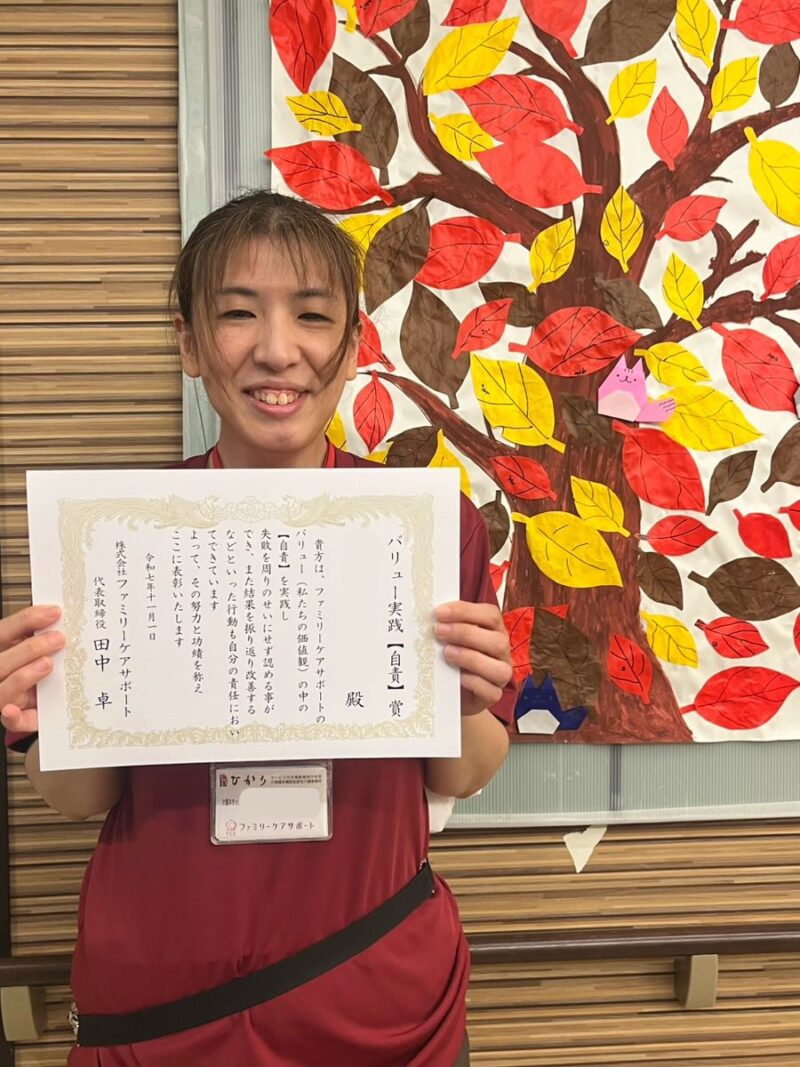 バリュー実践【自責】賞
殿
貴方は、ファミリーケアサポートの
バリュー（私たちの価値観）の中の
【自責】を実践し
失敗を周りのせいにせず認める事が
でき、また結果を振り返り改善する
などといった行動も自分の責任におい
てできています
よって、その努力と功績を称え
ここに表彰いたします
令和七年十一月一日
株式会社ファミリーケアサポート
代表取締役 田中 卓
ひかり
サービス付き高齢者向け住宅
小規模多機能型居宅介護事業所
介護スタッフ
ファミリーケアサポート